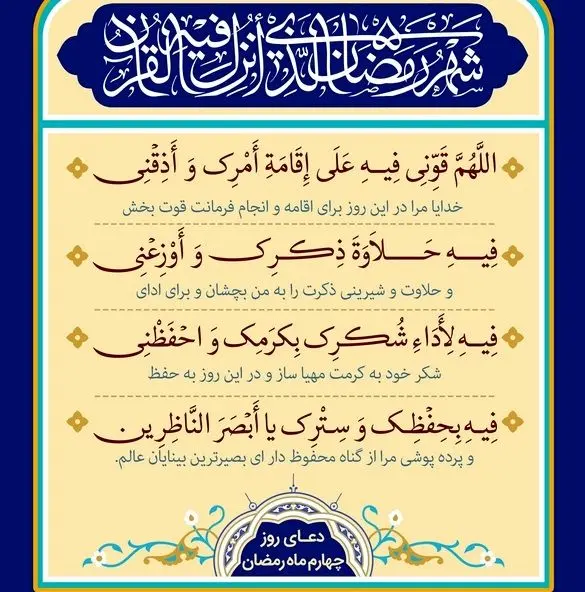 شهر رمضان الذي أنزل فيه القرآن
اللَّهُمَّ قَوِّنِی فِیهِ عَلَى إِقَامَةِ أَمْرِک وَ أَذِقْنِی
خدایا مرا در این روز برای اقامه و انجام فرمانت قوت بخش
فِیهِ حَلاَوَةَ ذِکرِک وَ أَوْزِعْنِی
و حلاوت و شیرینی ذکرت را به من بچشان و برای ادای
فِیهِ لِأَدَاءِ شُکرِک بِکرَمِک وَ احْفَظْنِی
شکر خود به کرمت مهیا ساز و در این روز به حفظ
فِیهِ بِحِفْظِک وَ سِتْرِک یا أَبْصَرَ النَّاظِرِین
و پرده پوشی مرا از گناه محفوظ دار ای بصیرترین بینایان عالم.
دعای روز
چهارم ماه رمضان